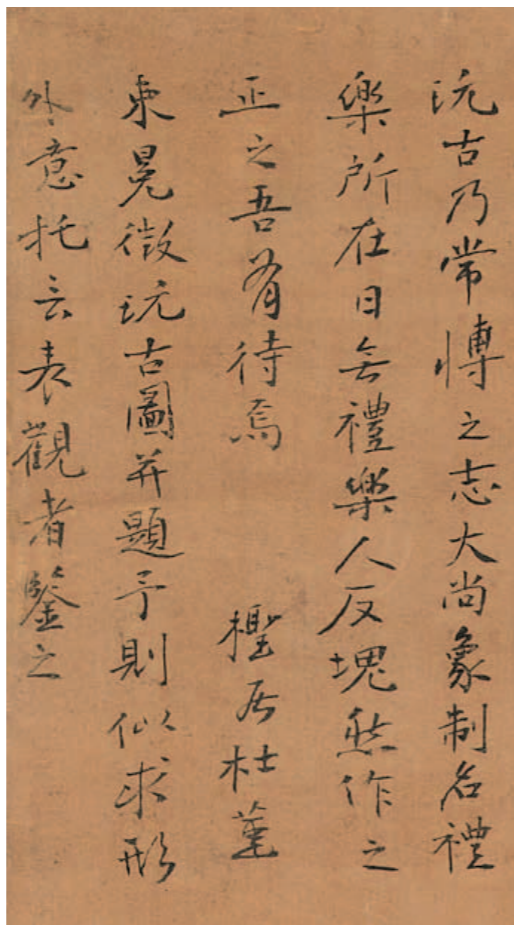 玩古乃常博之志大尚象制名禮
樂所在日無禮樂人反塊然作之
正之吾有待焉 檉居杜堇
東冕徵玩古圖并題予則似求形
外意托言表觀者鑒之